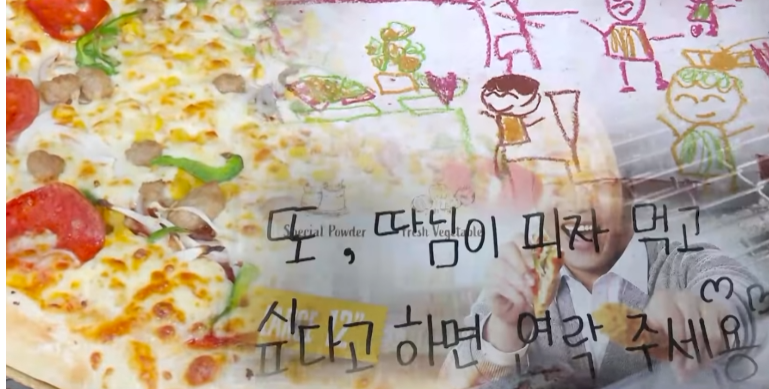 Special Powder
Fresh Vegetable
또, 따님이 피자 먹고
싶다고 하면 연락 주세요